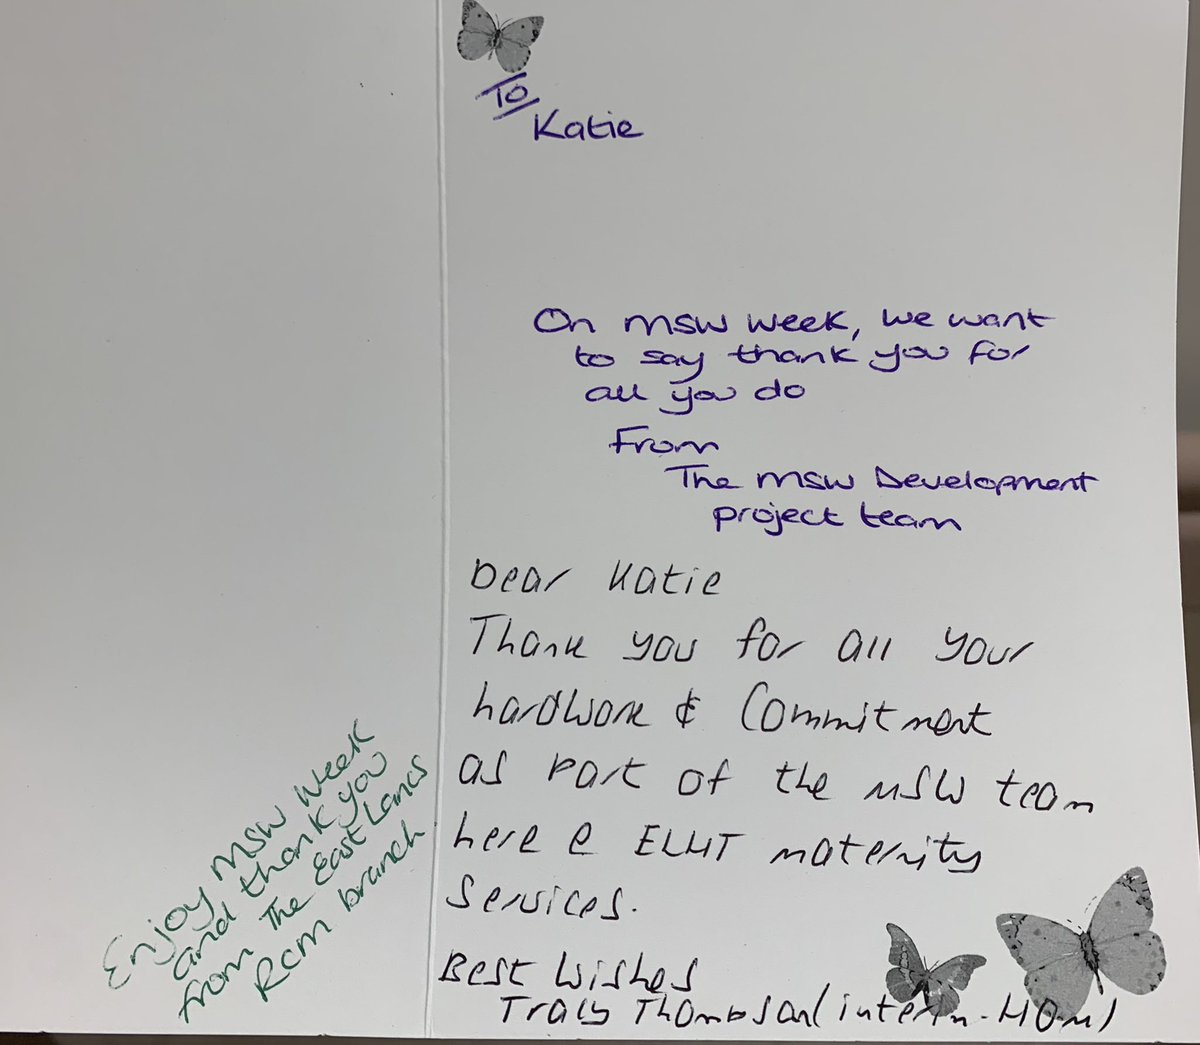 To
Katie
On MSW week, we want
to say thank you for
all you do
From
The MSW Development
project team
Dear Katie
Thank you for all your
hardwork & Commitment
as part of the MSW team
here @ ELHT maternity
Services.
Best Wishes
Tracy Thompson (interim-HOM)
Enjoy MSW week
and thank you
from The East Lancs
RCM branch